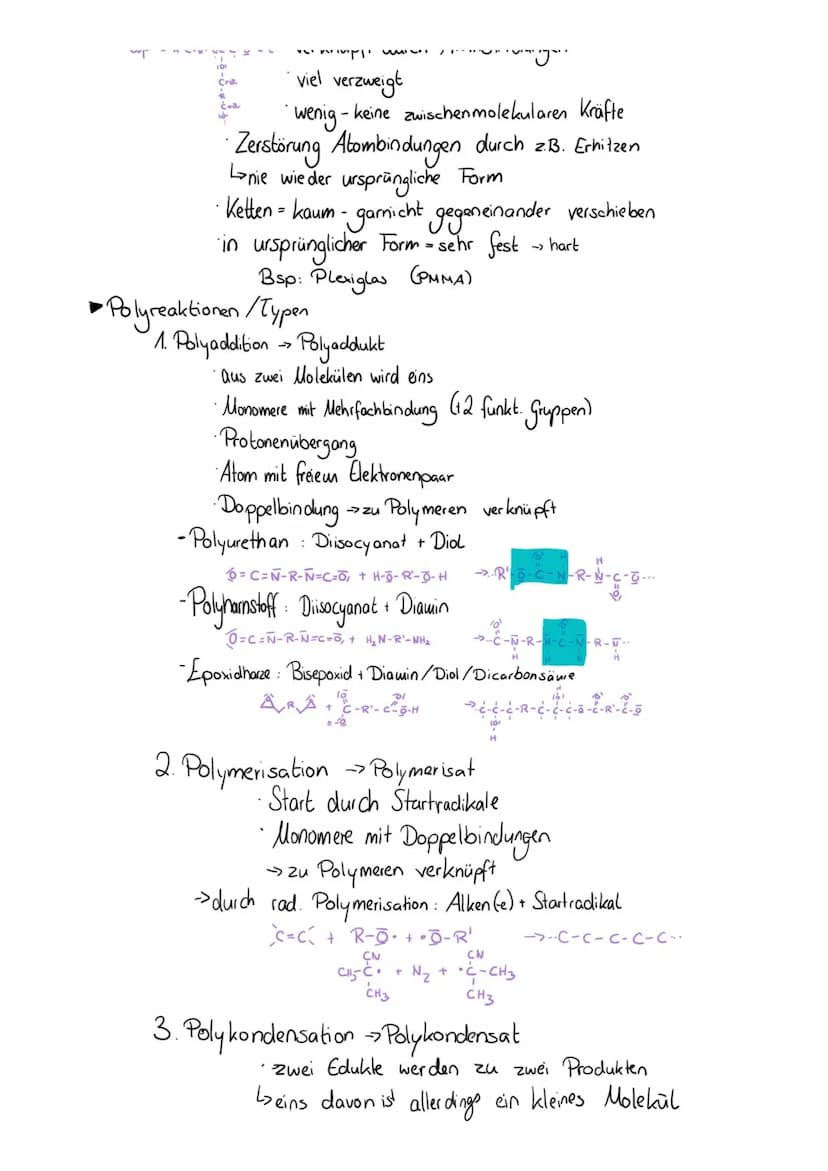 viel verzweigt
· wenig - keine zwischenmolekularen Kräfte
· Zerstörung Atombindungen durch z.B. Erhitzen
↳ nie wieder ursprüngliche Form
· Ketten = kaum - garnicht gegeneinander verschieben
· in ursprünglicher Form = sehr fest → hart
Bsp: Plexiglas (PMMA)
▶ Polyreaktionen / Typen
1. Polyaddition → Polyaddukt
· aus zwei Molekülen wird eins
· Monomere mit Mehrfachbindung (+2 funkt. Gruppen)
· Protonenübergang
· Atom mit freiem Elektronenpaar
· Doppelbindung → zu Polymeren verknüpft
- Polyurethan : Diisocyanat + Diol
O=C=N-R-N=C=O + H-O-R'-O-H → ··R'-O-C-N-R-N-C-O···
- Polyharnstoff : Diisocyanat + Diamin
O=C=N-R-N=C=O + H₂N-R'-NH₂ → ··C-N-R-N-C-N-R-N··
- Epoxidharze : Bisepoxid + Diamin / Diol / Dicarbonsäure
2. Polymerisation → Polymerisat
· Start durch Startradikale
· Monomere mit Doppelbindungen
→ zu Polymeren verknüpft
→ durch rad. Polymerisation : Alken(e) + Startradikal
C=C + R-O· + ·O-R' → ··C-C-C-C-C··
CN CN
CH₃-C· + N₂ + ·C-CH₃
CH₃ CH₃
3. Polykondensation → Polykondensat
· zwei Edukte werden zu zwei Produkten
↳ eins davon ist allerdings ein kleines Molekül